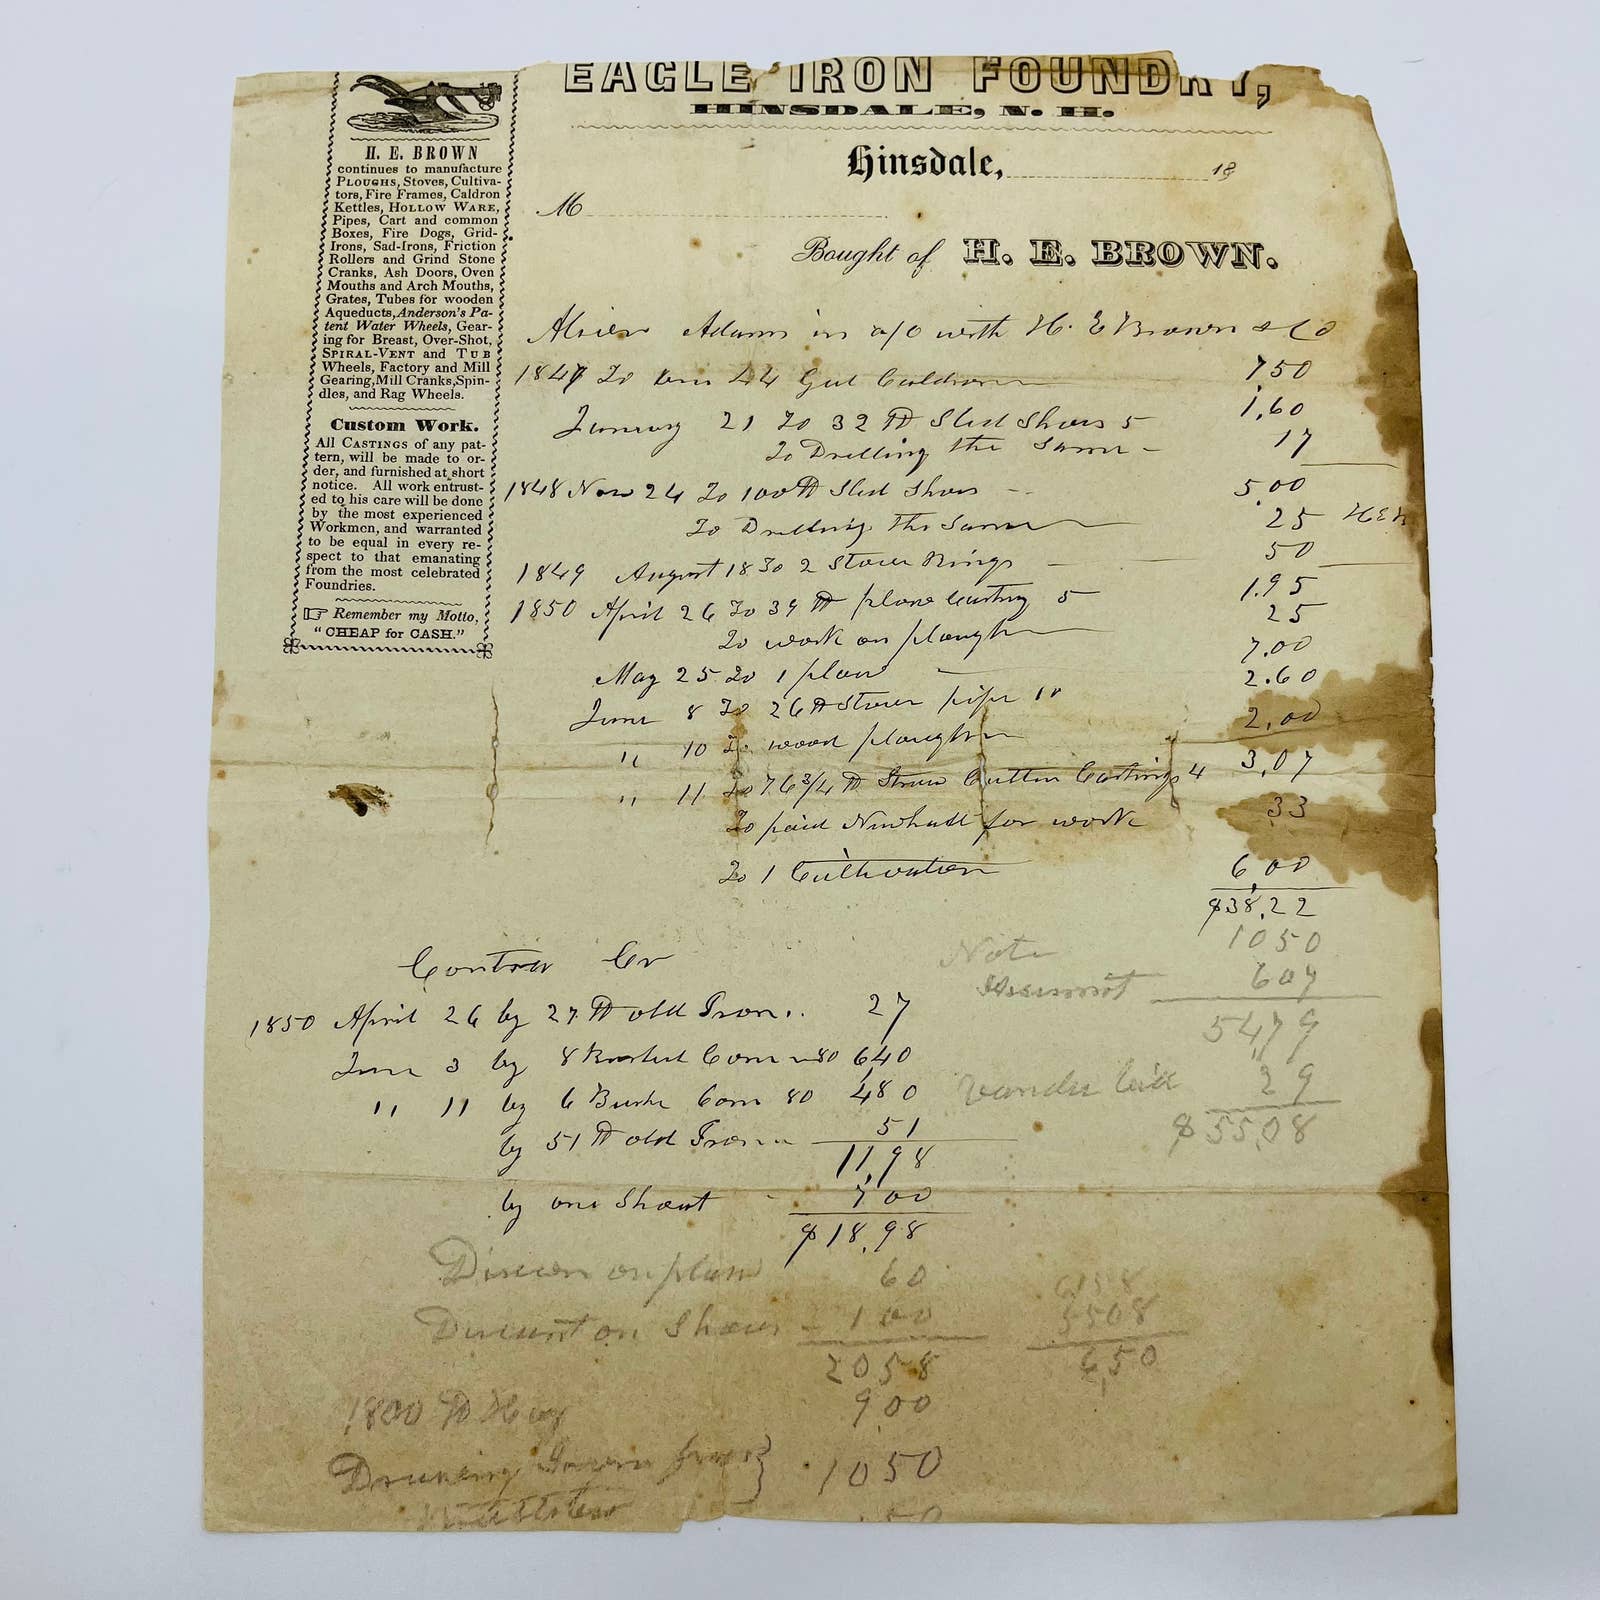 EAGLE IRON FOUNDRY,
HINSDALE, N. H.
Hinsdale, 18
M
Bought of H. E. BROWN.
H. E. BROWN
continues to manufacture
PLOUGHS, Stoves, Cultiva-
tors, Fire Frames, Caldron
Kettles, HOLLOW WARE,
Pipes, Cart and common
Boxes, Fire Dogs, Grid-
Irons, Sad-Irons, Friction
Rollers and Grind Stone
Cranks, Ash Doors, Oven
Mouths and Arch Mouths,
Grates, Tubes for wooden
Aqueducts, Anderson's Pa-
tent Water Wheels, Gear-
ing for Breast, Over-Shot,
SPIRAL-VENT and TUB
Wheels, Factory and Mill
Gearing, Mill Cranks, Spin-
dles, and Rag Wheels.
Custom Work.
All CASTINGS of any pat-
tern, will be made to or-
der, and furnished at short
notice. All work entrust-
ed to his care will be done
by the most experienced
Workmen, and warranted
to be equal in every re-
spect to that emanating
from the most celebrated
Foundries.
Remember my Motto,
"CHEAP for CASH."
Adams in a/c with H. E Brown & Co
1847 To 44 Gal Caldron 7 50
January 21 To 32 lb Sled Shoes 5 1,60
To Drilling the Same 17
1848 Nov 24 To 100 lb Sled Shoes 5,00
To Drilling the Same 25
1849 August 18 To 2 Stove Rings 50
1850 April 26 To 39 lb plow Casting 5 1.95
To work on plough 25
May 25 To 1 plow 7.00
June 8 To 26 lb Stove pipe 10 2.60
" 10 To wood plough 2,00
" 11 To 76 3/4 lb Straw Cutter Castings 4 3,07
To paid for work 33
To 1 Cultivator 6,00
$38,22
Note 10 50
6 07
54,79
29
$55,08
Contra Cr
1850 April 26 by 27 lb old Iron 27
June 3 by 8 Bushel Corn 80 6,40
" 11 by 6 Bush Corn 80 4 80
by 51 lb old Iron 51
11,98
by one Shoat 7 00
$18,98
on plow 60
Discount on Shoes 1 00
20 58
1800 lb Hay 9 00
10 50
61 58
55 08
6,50